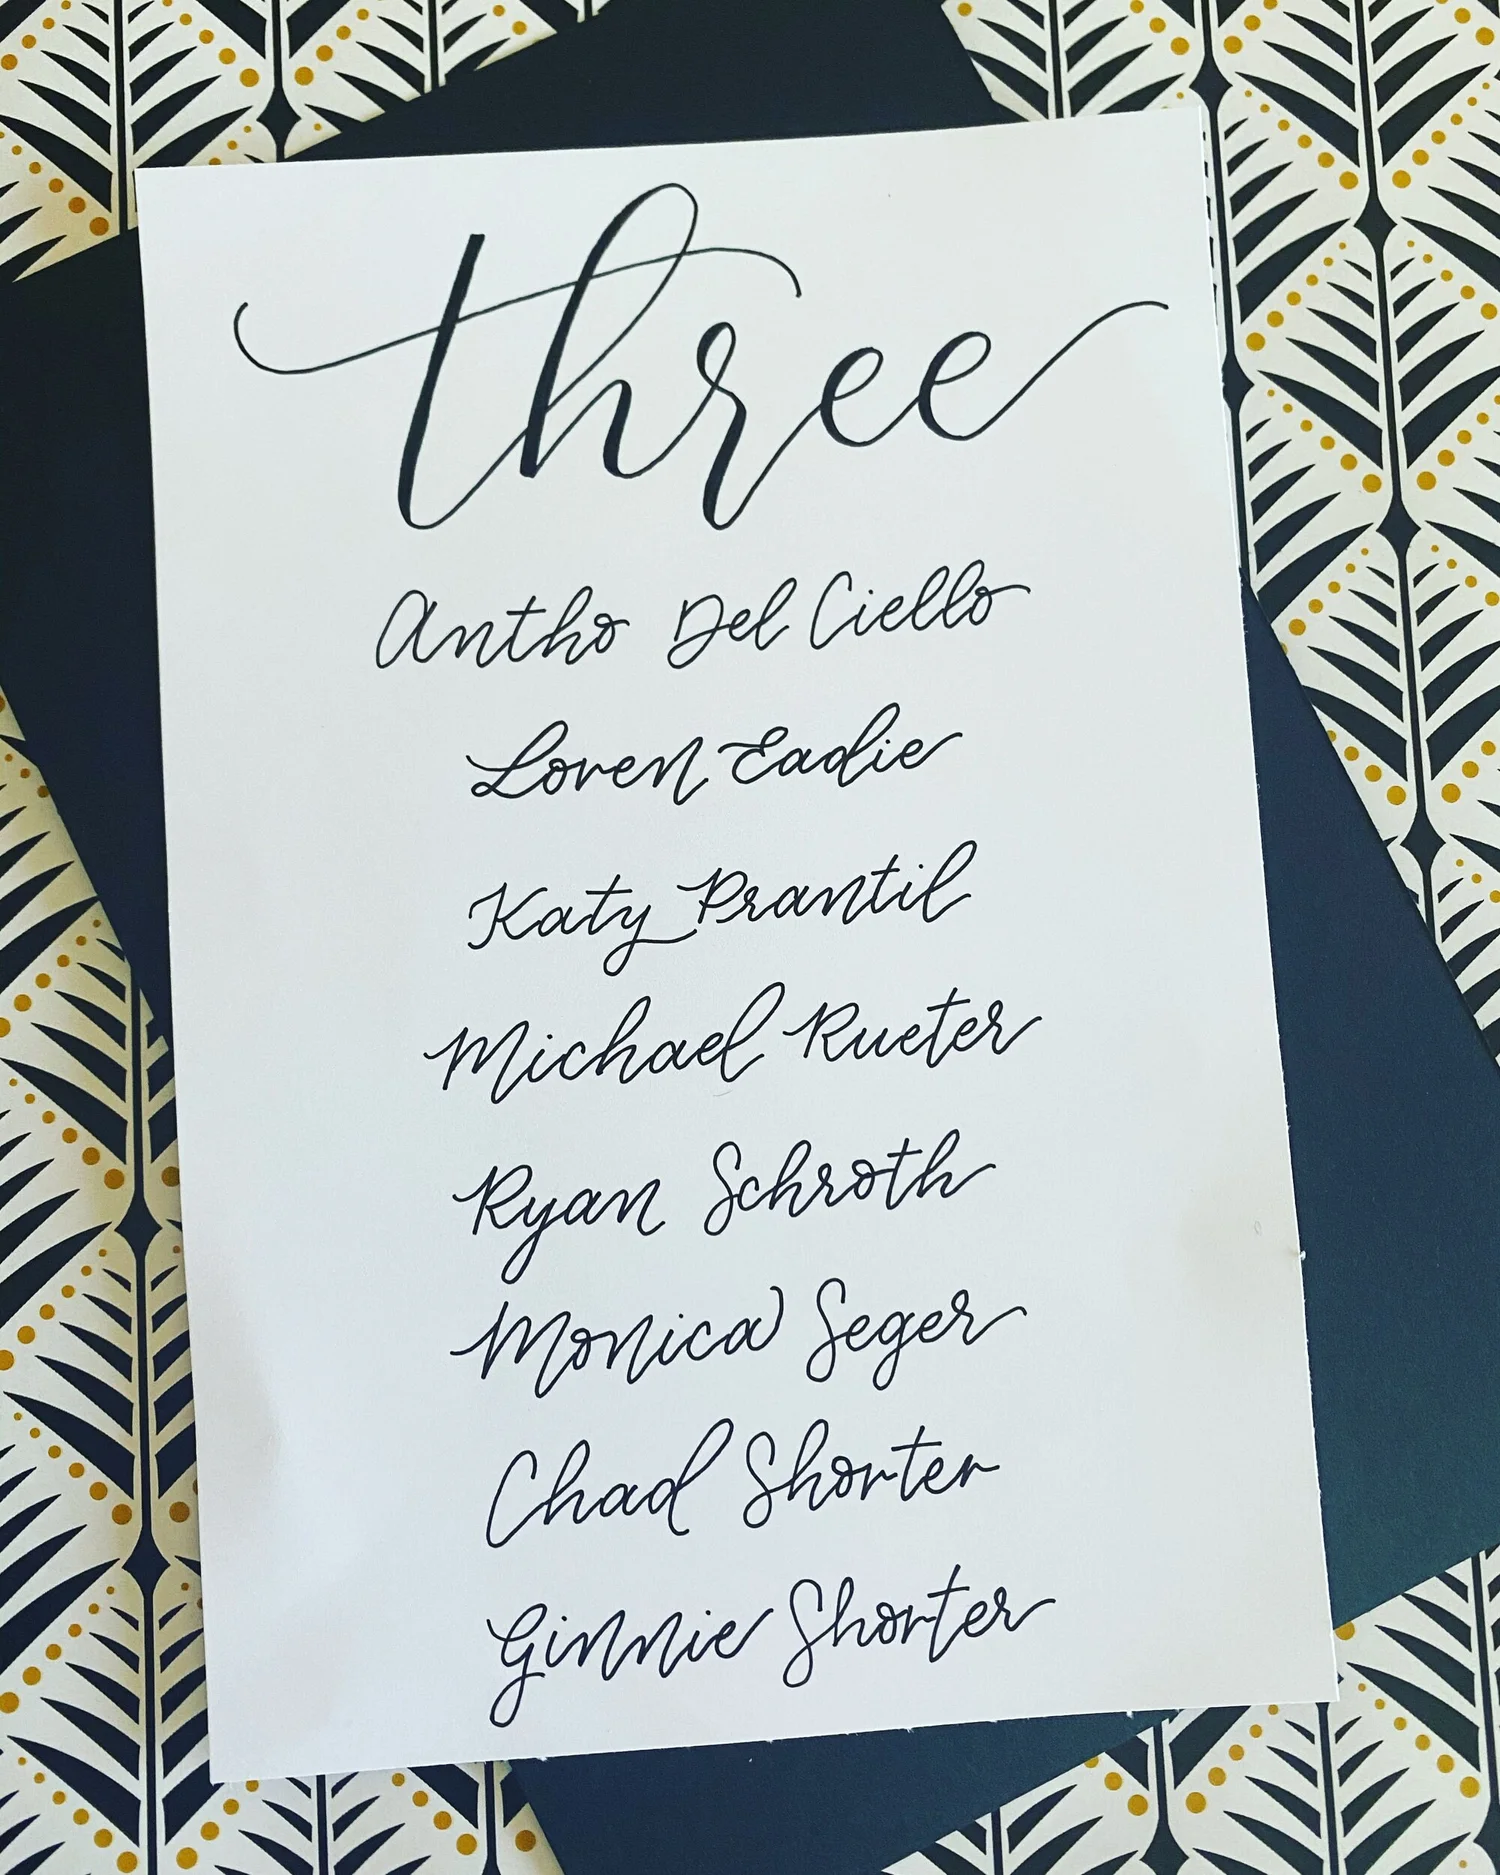 three
Antho Del Ciello
Loren Eadie
Katy Prantil
Michael Rueter
Ryan Schroth
Monica Seger
Chad Shorter
Ginnie Shorter